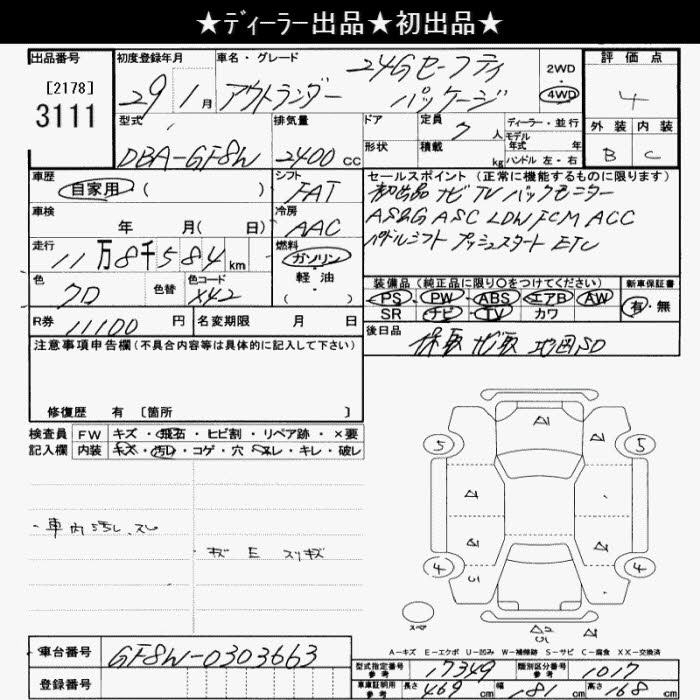 ★ディーラー出品★初出品★
出品番号
[2178]
3111
初度登録年月
29年 1月
車名・グレード
24Gセーフティ
アウトランダー パッケージ
2WD
4WD
評価点
4
外装 内装
B C
型式
DBA-GF8W
排気量
2400 cc
ドア
形状
定員 7人
積載 kg
ディーラー・並行
モデル
年式 年
ハンドル 左・右
車歴
自家用 ( )
シフト
FAT
車検
年 月( 日)
冷房
AAC
走行
11万8千584 km
燃料
ガソリン
軽油
( )
色
クロ
色替
色コード
X42
R券 11100 円
名変期限 月 日
セールスポイント (正常に機能するものに限ります)
初出品 ナビ TV バックモニター
AS&G ASC LDW FCM ACC
パドルシフト プッシュスタート ETC
装備品 (純正品に限り○をつけてください)
新車保証書
PS PW ABS エアB AW
SR ナビ TV カワ
有・無
後日品
保取 ナビ取 地図SD
注意事項申告欄(不具合内容等は具体的に記入して下さい)
修復歴 有 [箇所 ]
検査員 FW キズ・飛石・ヒビ割・リペア跡・×要
記入欄 内装 キズ・汚レ・コゲ・穴・スレ・キレ・破レ
・車内汚レ、スレ
・キズ E スリキズ
A2
5 5
A1 A1
A1 A1
4 4
スペア
A2
A-キズ E-エクボ U-凹み W-補修跡 S-サビ C-腐食 XX-交換済
車台番号 GF8W-0303663
登録番号
型式指定番号 参考 17349
類別区分番号 参考 1017
車庫証明用 参考 長さ 469 cm 幅 181 cm 高さ 168 cm